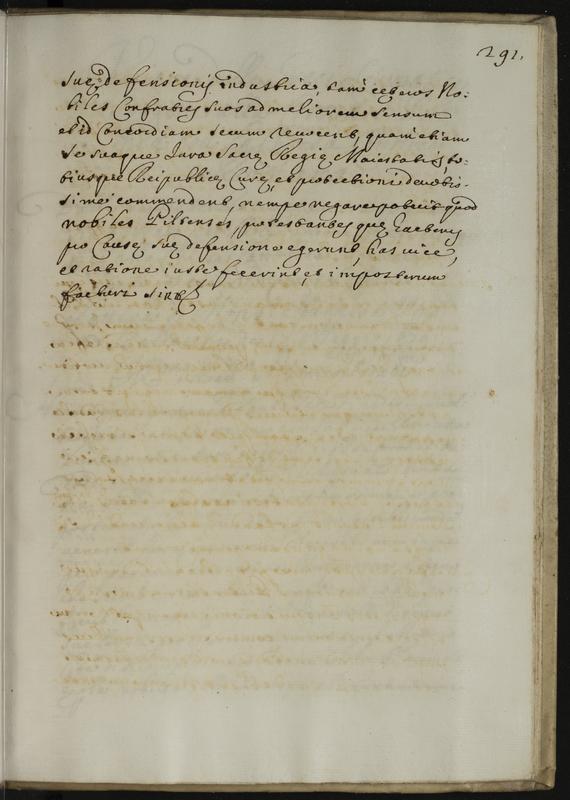 291.
suę defensionis industria, tam cęteros No:
biles Confratres suos ad meliorem sensum
et id Concordiam secum revocent, quam etiam
se suaque Jura Sacrę Regię Maiestatis, to:
tiusque Reipublicę Curę, et protectioni devotis:
sime commendent, nempe negare poterit quod
nobiles Piltenses, protestantes quę hactenus
pro Causę suę defensione egerunt, has vice,
et ratione iuste fecerint, et imposterum
facturi sint